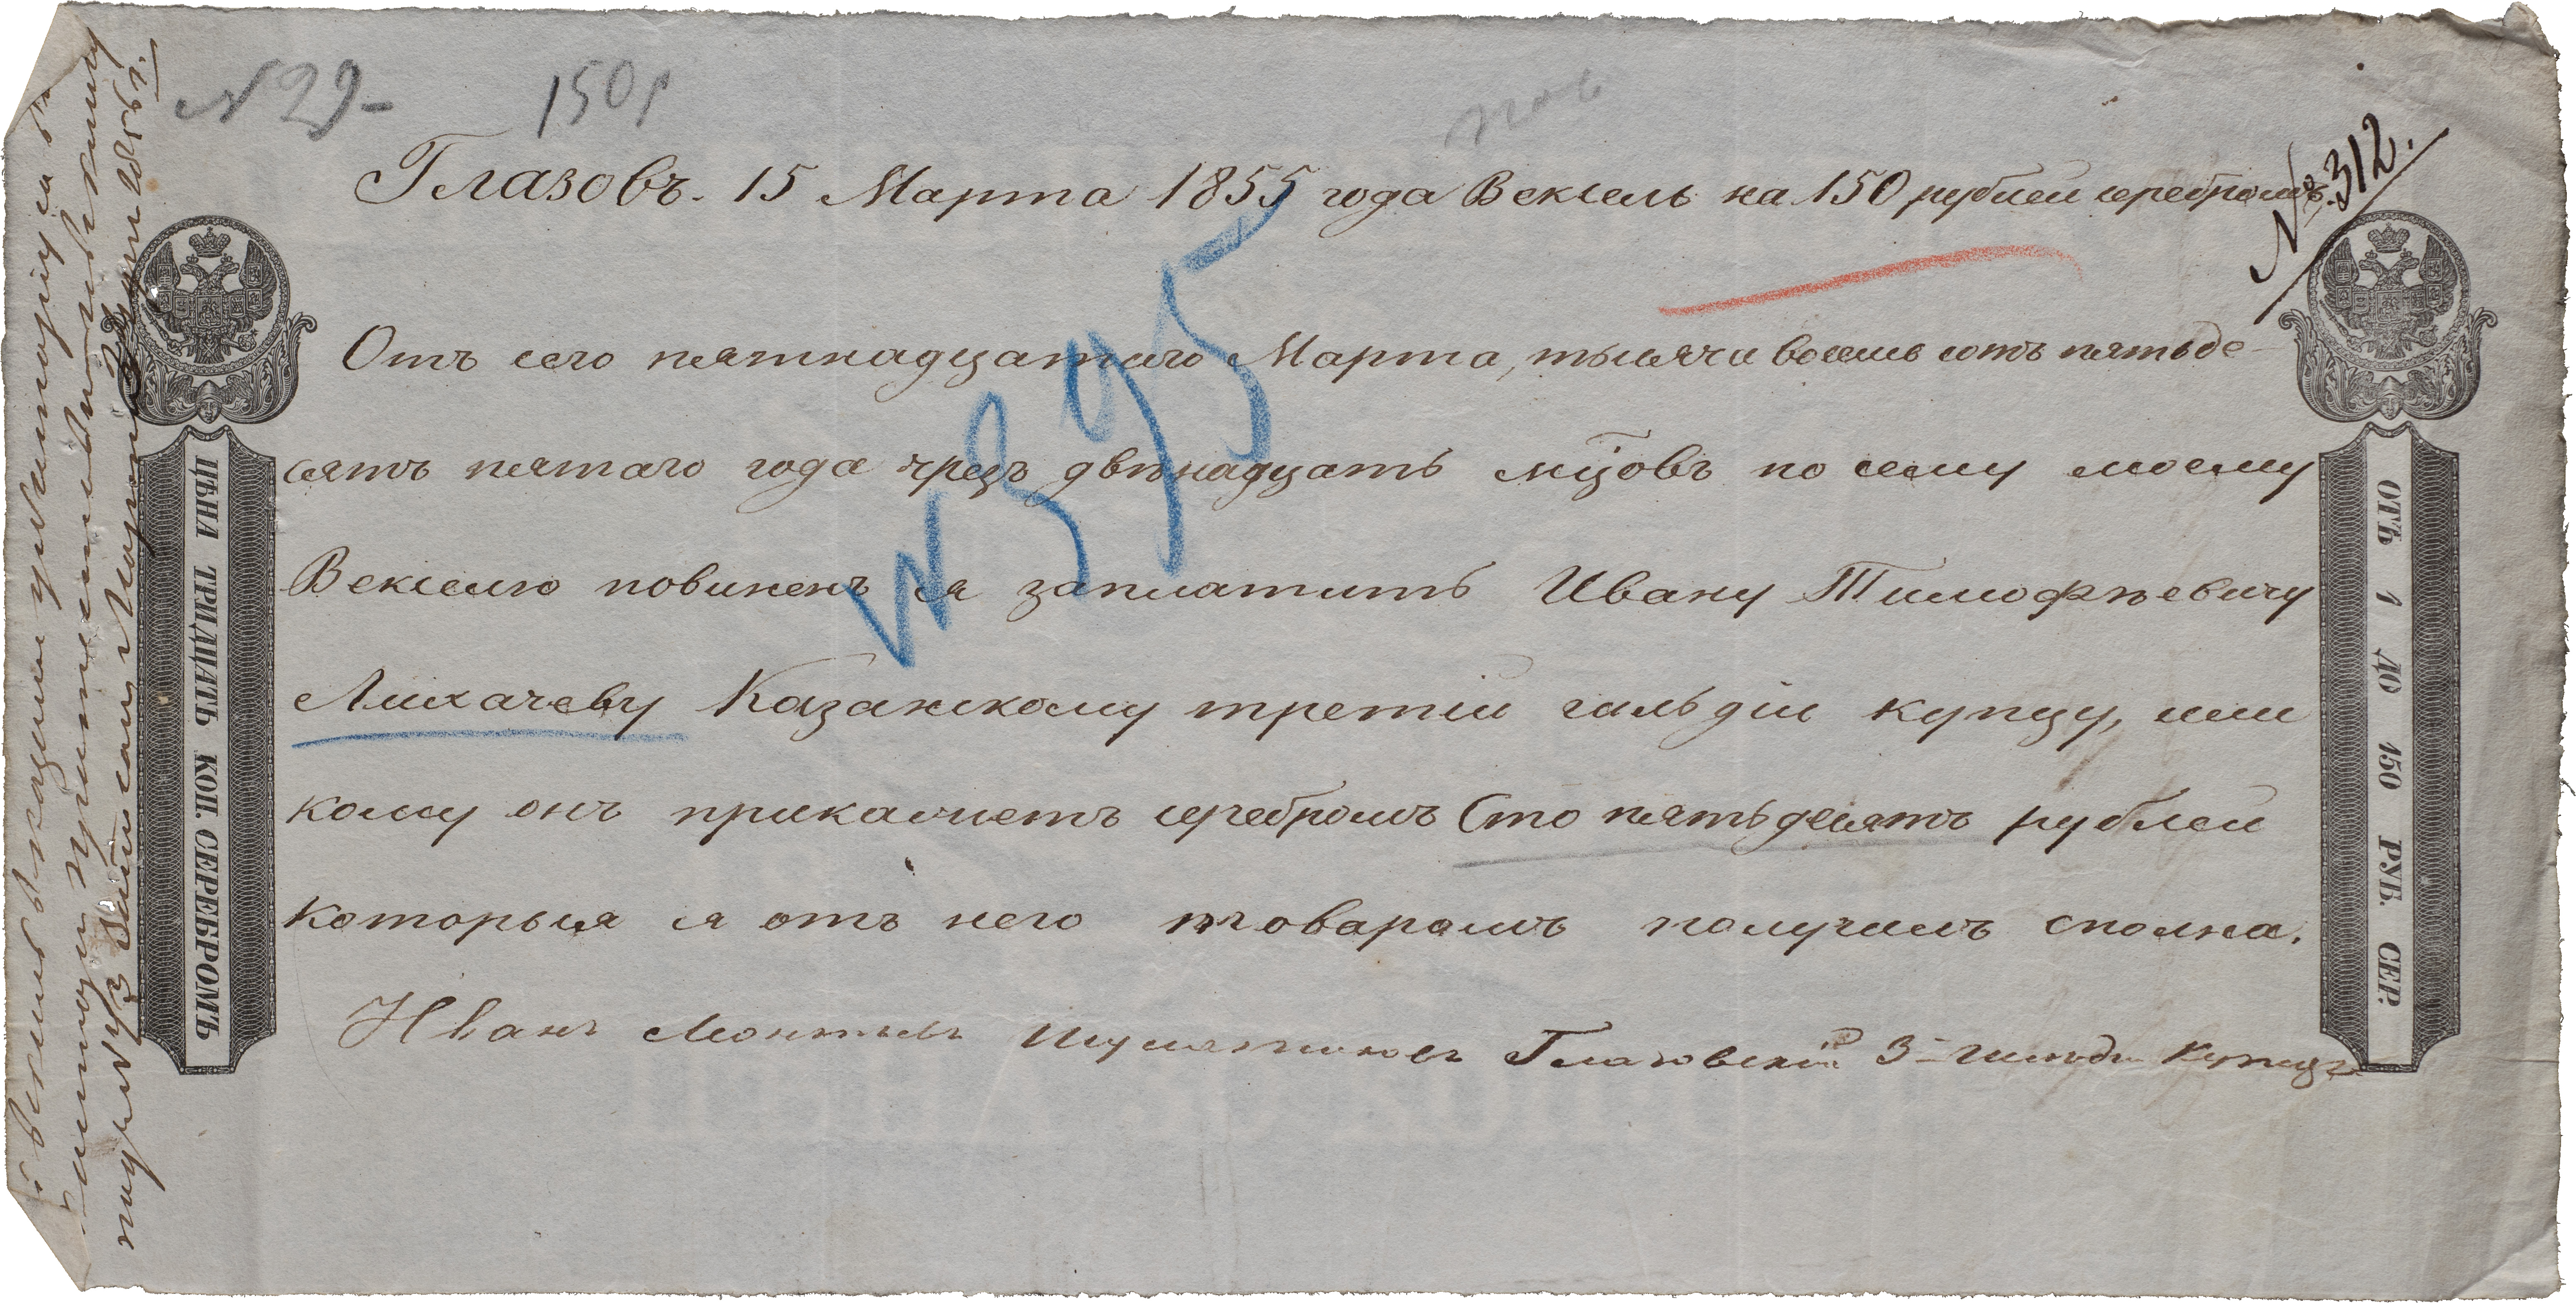 N 29-
150 р
Глазовъ. 15 Марта 1855 года Вексель на 150 рублей серебромъ.
№ 312.
Отъ сего пятнадцатаго Марта, тысяча восемь сотъ пятьде-
сятъ пятаго года чрезъ двѣнадцать мцовъ по сему моему
Векселю повиненъ я заплатить Ивану Тимофѣевичу
Лихачеву Казанскому третій гильдіи купцу, или
кому онъ прикажетъ серебромъ Сто пятьдесятъ рублей
которыя я отъ него товаромъ получилъ сполна.
Иванъ Леонтьевъ Глазовскій 3й гильди Купецъ
N 395
ЦѢНА ТРИДЦАТЬ КОП. СЕРЕБРОМЪ
ОТЪ 1 ДО 150 РУБ. СЕР.